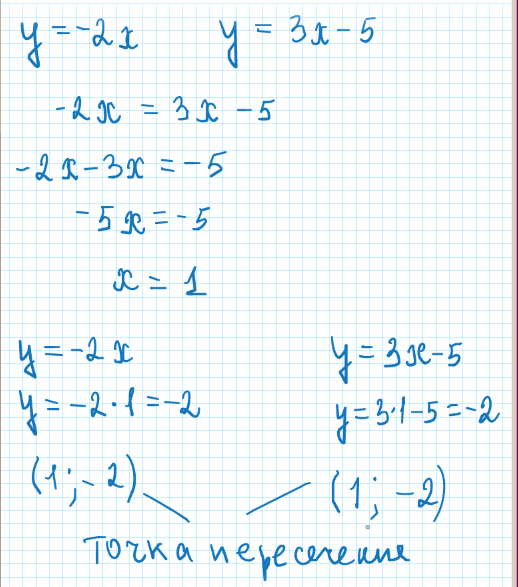 y = -2x y = 3x - 5
-2x = 3x - 5
-2x - 3x = -5
-5x = -5
x = 1
y = -2x y = 3x - 5
y = -2 · 1 = -2 y = 3 · 1 - 5 = -2
(1; -2) (1; -2)
Точка пересечения